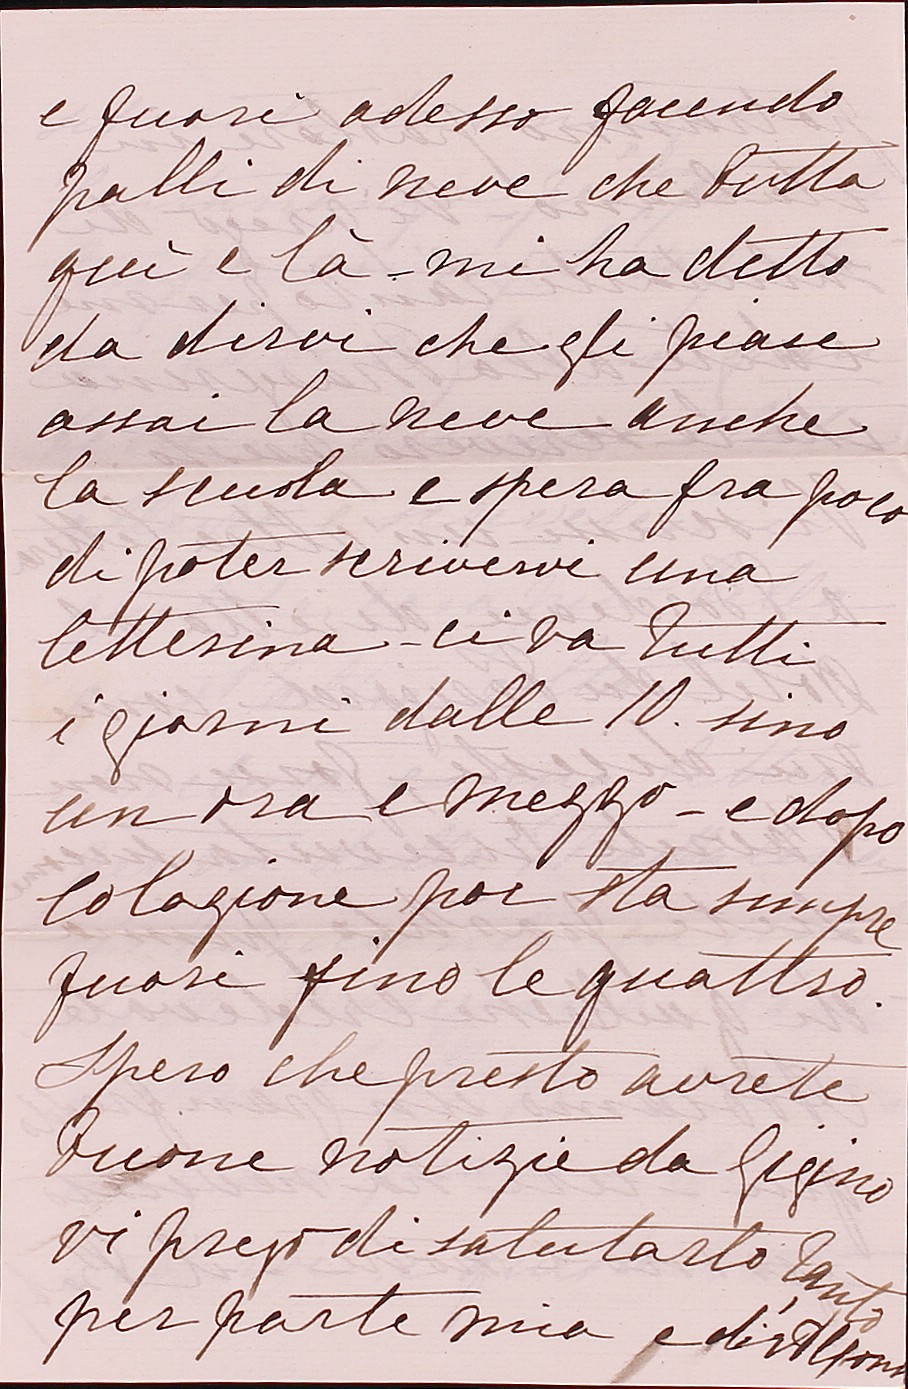 e fuori adesso facendo
palli di neve che butta
quì e là - mi ha detto
da dirvi che gli piace
assai la neve anche
la scuola e spera fra poco
di poter scrivervi una
letterina - ci va tutti
i giorni dalle 10. sino
un ora e mezzo - e dopo
colagione poi sta sempre
fuori fino le quattro.
Spero che presto avrete
buone notizie da Gigino
vi prego di salutarlo tanto
per parte mia e di